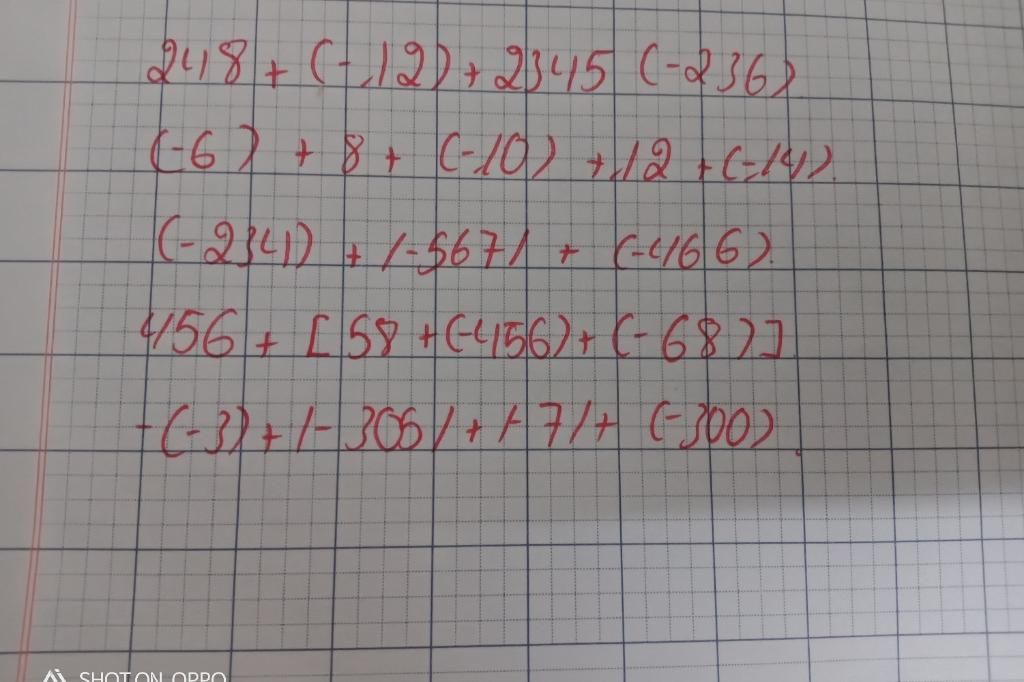 248 + (-12) + 2345 (-236)
(-6) + 8 + (-10) + 12 + (-14).
(-234) + /-567/ + (-466).
456 + [58 + (-456) + (-68)]
-(-3) + /-306/ + /-7/ + (-300).
SHOT ON OPPO